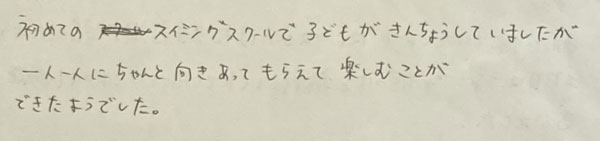 初めての スイミングスクールで 子どもが きんちょうしていましたが
一人一人に ちゃんと 向きあって もらえて 楽しむことが
できたようでした。